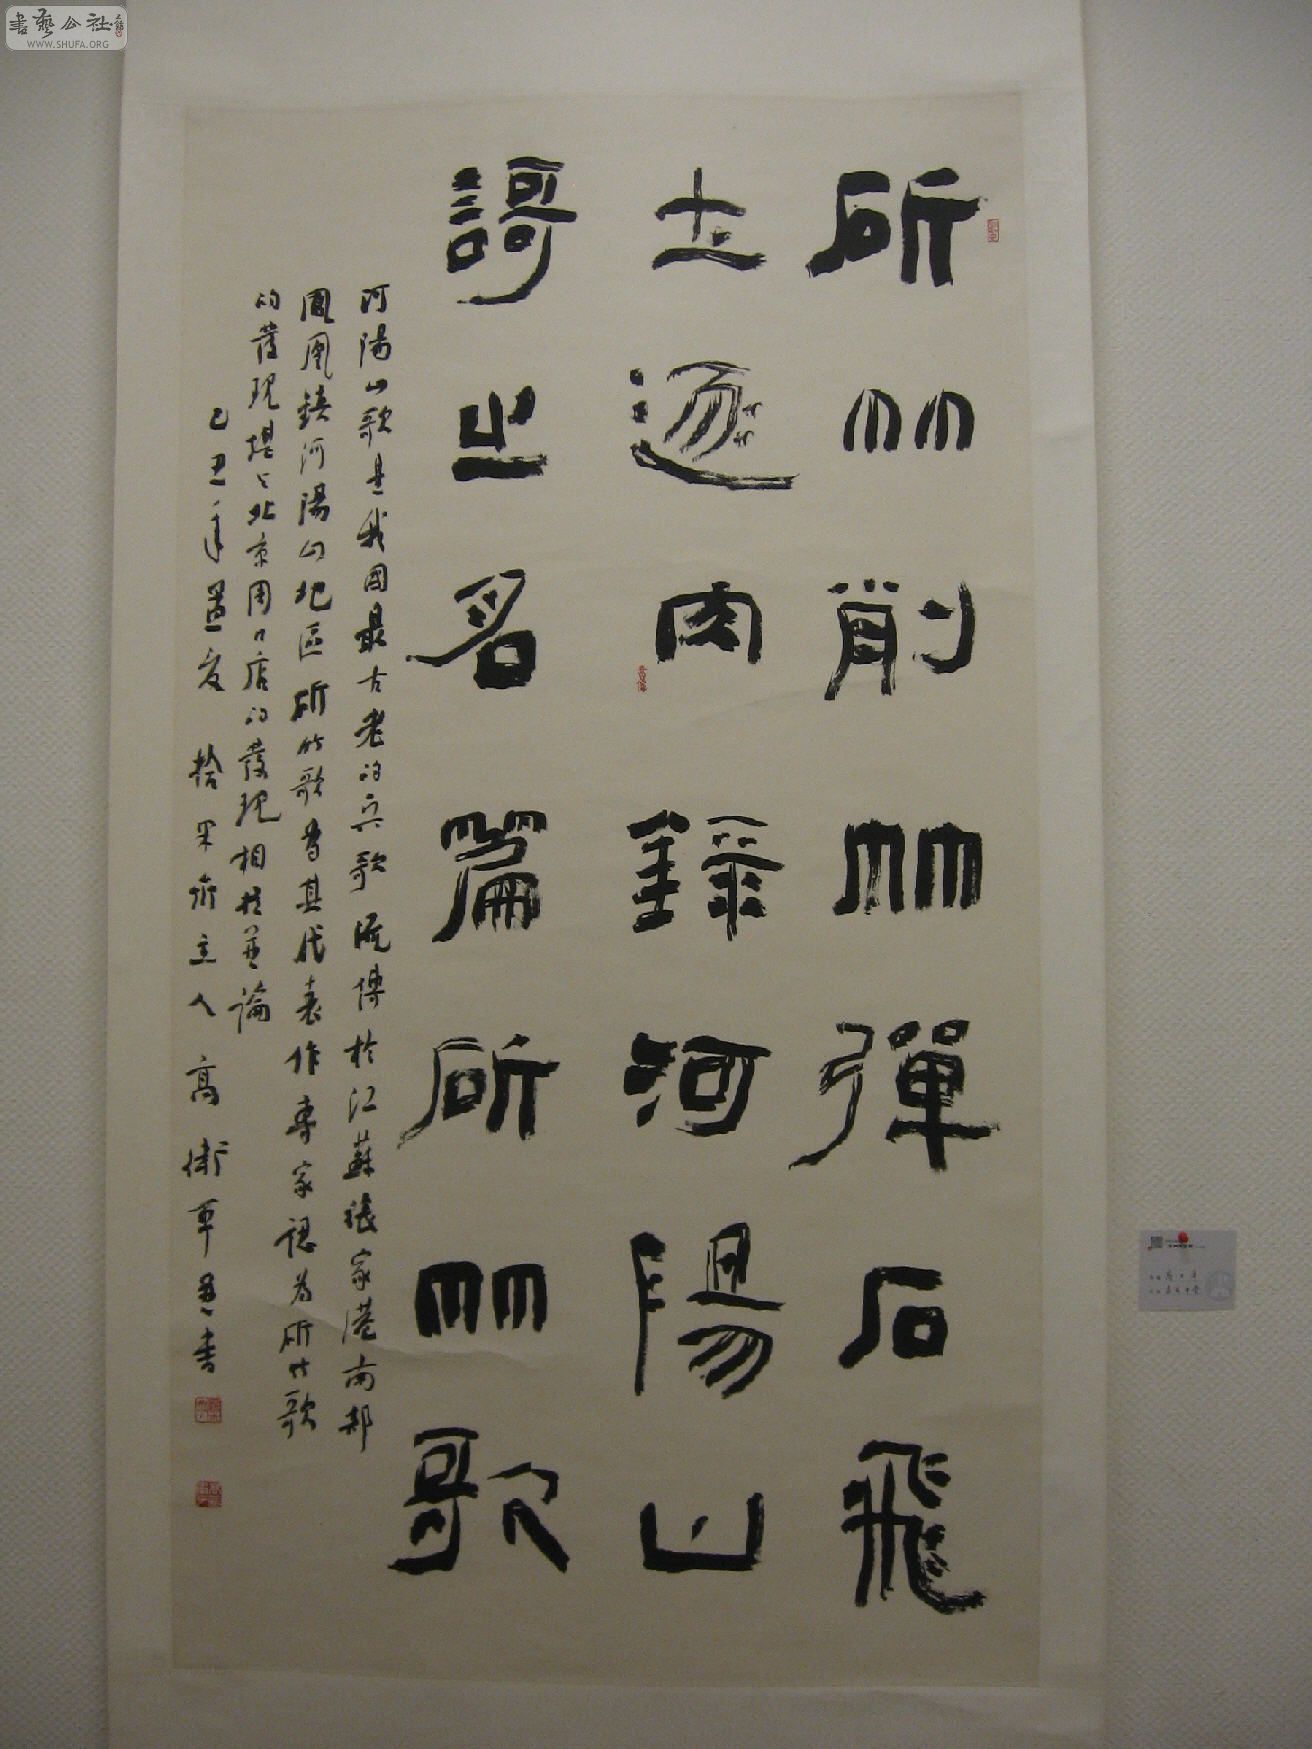 斫竹削竹彈石飛
土逐肉錄河陽山
謌之名篇斫竹歌
河陽山歌是我國最古老的山歌流傳於江蘇張家港南部
鳳凰鎮河陽山地區斫竹歌為其代表作專家認為斫竹歌
的發現堪与北京周口店的發現相提並論
己丑年夏 拾 齋主人高衛軍 書
書藝公社
WWW.SHUFA.ORG